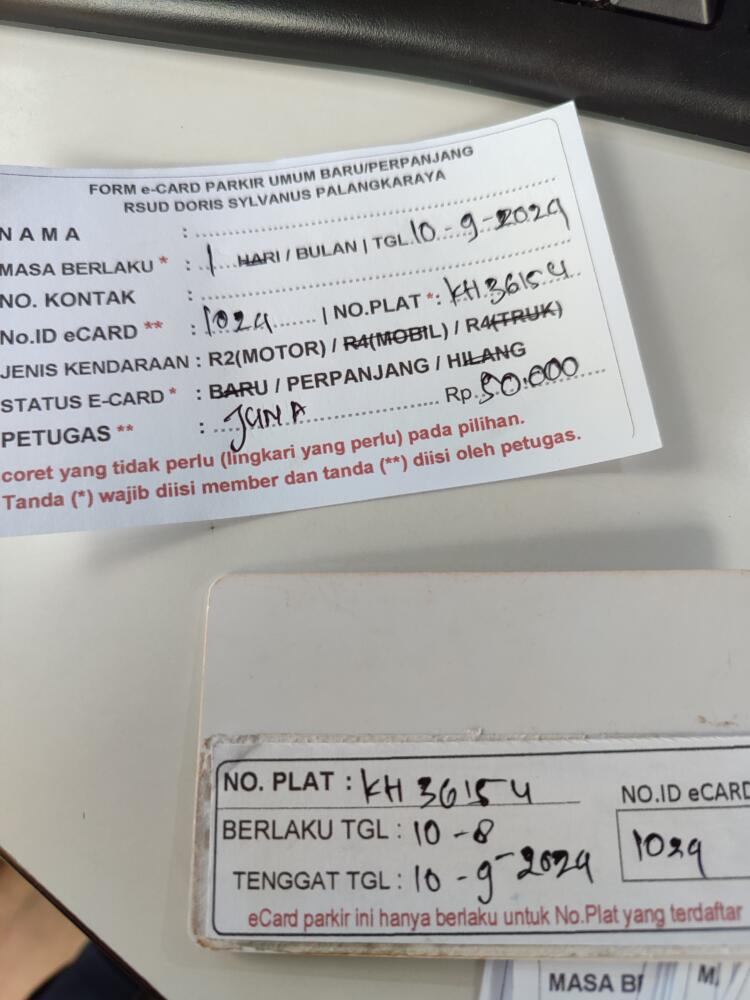 FORM e-CARD PARKIR UMUM BARU/PERPANJANG
RSUD DORIS SYLVANUS PALANGKARAYA
NAMA :
MASA BERLAKU * : 1 HARI / BULAN | TGL. 10-9-2024
NO. KONTAK :
No.ID eCARD ** : 1024 | NO.PLAT *: KH 3615 Y
JENIS KENDARAAN : R2(MOTOR) / R4(MOBIL) / R4(TRUK)
STATUS E-CARD * : BARU / PERPANJANG / HILANG
PETUGAS ** : JUNA Rp. 50.000
coret yang tidak perlu (lingkari yang perlu) pada pilihan.
Tanda (*) wajib diisi member dan tanda (**) diisi oleh petugas.
NO. PLAT : KH 3615 Y
NO.ID eCARD
BERLAKU TGL : 10-8
1024
TENGGAT TGL : 10-9-2024
eCard parkir ini hanya berlaku untuk No.Plat yang terdaftar
MASA